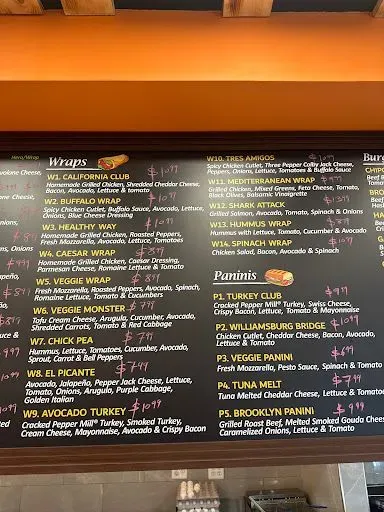 Hero/Wrap
Wraps
W1. CALIFORNIA CLUB
Homemade Grilled Chicken, Shredded Cheddar Cheese,
Bacon, Avocado, Lettuce & tomato
W2. BUFFALO WRAP
Spicy Chicken Cutlet, Buffalo Sauce, Avocado, Lettuce,
Onions, Blue Cheese Dressing
W3. HEALTHY WAY
Homemade Grilled Chicken, Roasted Peppers,
Fresh Mozzarella, Avocado, Lettuce, Tomatoes
W4. CAESAR WRAP $8.99
Homemade Grilled Chicken, Caesar Dressing,
Parmesan Cheese, Romaine Lettuce & Tomato
W5. VEGGIE WRAP
Fresh Mozzarella, Roasted Peppers, Avocado, Spinach,
Romaine Lettuce, Tomato & Cucumbers
W6. VEGGIE MONSTER $7.99
Tofu Cream Cheese, Arugula, Cucumber, Avocado,
Shredded Carrots, Tomato & Red Cabbage
W7. CHICK PEA $7.99
Hummus, Lettuce, Tomatoes, Cucumber, Avocado,
Sprout, Carrot & Bell Peppers
W8. EL PICANTE $7.99
Avocado, Jalapeño, Pepper Jack Cheese, Lettuce,
Tomato, Onions, Arugula, Purple Cabbage,
Golden Italian
W9. AVOCADO TURKEY $10.99
Cracked Pepper Mill® Turkey, Smoked Turkey,
Cream Cheese, Mayonnaise, Avocado & Crispy Bacon
W10. TRES AMIGOS $10.99
Spicy Chicken Cutlet, Three Pepper Colby Jack Cheese,
Peppers, Onions, Lettuce, Tomatoes & Buffalo Sauce
W11. MEDITERRANEAN WRAP $9.99
Grilled Chicken, Mixed Greens, Feta Cheese, Tomato,
Black Olives, Balsamic Vinaigrette
W12. SHARK ATTACK
Grilled Salmon, Avocado, Tomato, Spinach & Onions
W13. HUMMUS WRAP $8.99
Hummus with Lettuce, Tomato, Cucumber & Avocado
W14. SPINACH WRAP $10.99
Chicken Salad, Bacon, Avocado & Spinach
Paninis
P1. TURKEY CLUB $9.99
Cracked Pepper Mill® Turkey, Swiss Cheese,
Crispy Bacon, Lettuce, Tomato & Mayonnaise
P2. WILLIAMSBURG BRIDGE $10.99
Chicken Cutlet, Cheddar Cheese, Bacon, Avocado,
Lettuce & Tomato
P3. VEGGIE PANINI $6.99
Fresh Mozzarella, Pesto Sauce, Spinach & Tomato
P4. TUNA MELT $7.99
Tuna Melted Cheddar Cheese, Lettuce & Tomatoes
P5. BROOKLYN PANINI $9.99
Grilled Roast Beef, Melted Smoked Gouda Cheese,
Caramelized Onions, Lettuce & Tomato